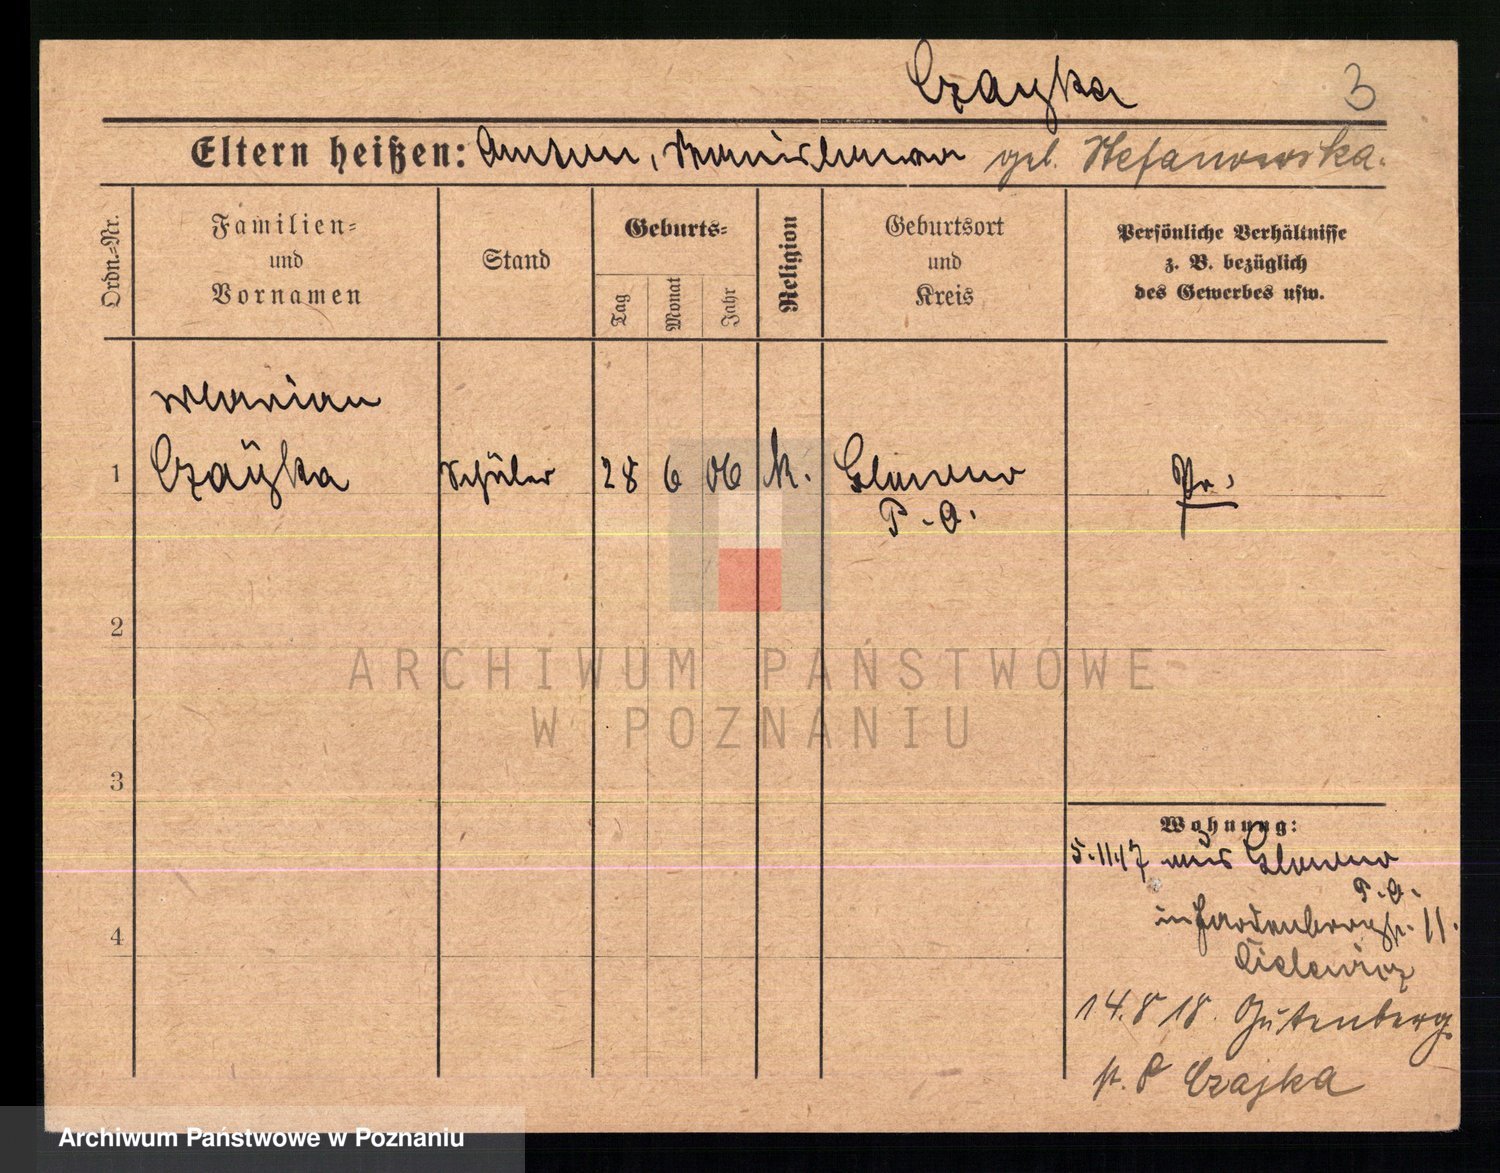 Czayka 3
Eltern heißen: Anton, Stanislawa geb. Stefanowska.
Ordn.-Nr.
Familien-
und
Vornamen
Stand
Geburts-
Tag
Monat
Jahr
Religion
Geburtsort
und
Kreis
Persönliche Verhältnisse
z. B. bezüglich
des Gewerbes usw.
Marian
1 Czaÿka Schüler 28 6 06 k. Glowno Pr.
P. O.
2
3
4
Wohnung:
5.11.17 aus Glowno
P. O.
in Hardenbergstr. 11.
Cielewicz
14.8 18. Gutenberg
str. 8 Czajka
ARCHIWUM PAŃSTWOWE
W POZNANIU
Archiwum Państwowe w Poznaniu